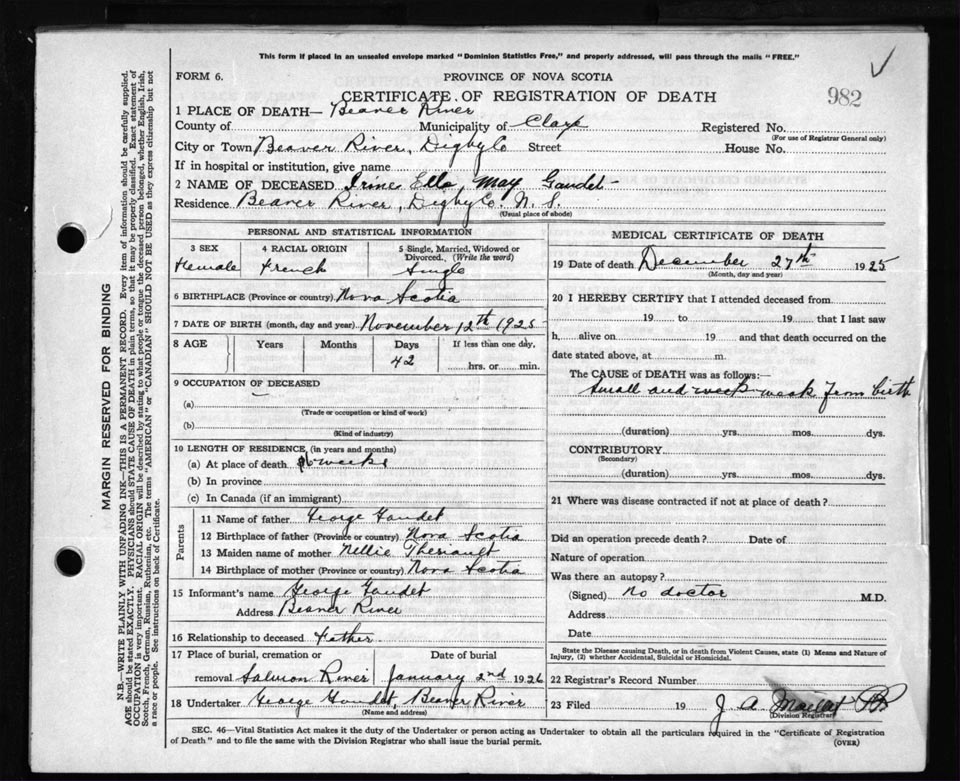 This form if placed in an unsealed envelope marked "Dominion Statistics Free," and properly addressed, will pass through the mails "FREE."
FORM 6.
PROVINCE OF NOVA SCOTIA
CERTIFICATE OF REGISTRATION OF DEATH
982
1 PLACE OF DEATH— Beaver River
County of Municipality of Clare Registered No.
(For use of Registrar General only)
City or Town Beaver River, Digby Co Street House No.
If in hospital or institution, give name
2 NAME OF DECEASED Irine Ella May Gaudet
Residence Beaver River, Digby Co. N. S.
(Usual place of abode)
PERSONAL AND STATISTICAL INFORMATION
3 SEX 4 RACIAL ORIGIN 5 Single, Married, Widowed or Divorced. (Write the word)
Female French Single
6 BIRTHPLACE (Province or country) Nova Scotia
7 DATE OF BIRTH (month, day and year) November 12th 1925
8 AGE Years Months Days If less than one day,
42 hrs. or min.
9 OCCUPATION OF DECEASED
(a)
(Trade or occupation or kind of work)
(b)
(Kind of industry)
10 LENGTH OF RESIDENCE (in years and months)
(a) At place of death 6 weeks
(b) In province
(c) In Canada (if an immigrant)
Parents
11 Name of father George Gaudet
12 Birthplace of father (Province or country) Nova Scotia
13 Maiden name of mother Nellie Theriault
14 Birthplace of mother (Province or country) Nova Scotia
15 Informant's name George Gaudet
Address Beaver River
16 Relationship to deceased Father
17 Place of burial, cremation or Date of burial
removal Salmon River January 2nd 1926
18 Undertaker George Gaudet, Beaver River
(Name and address)
MEDICAL CERTIFICATE OF DEATH
19 Date of death December 27th 1925
(Month, day and year)
20 I HEREBY CERTIFY that I attended deceased from
19 to 19 that I last saw
h alive on 19 and that death occurred on the
date stated above, at m.
The CAUSE of DEATH was as follows:—
Small and week weak from birth
(duration) yrs. mos. dys.
CONTRIBUTORY
(Secondary)
(duration) yrs. mos. dys.
21 Where was disease contracted if not at place of death?
Did an operation precede death? Date of
Nature of operation
Was there an autopsy?
(Signed) No doctor M.D.
Address
Date
State the Disease causing Death, or in death from Violent Causes, state (1) Means and Nature of
Injury, (2) whether Accidental, Suicidal or Homicidal.
22 Registrar's Record Number
23 Filed 19 J. A.
(Division Registrar)
SEC. 46—Vital Statistics Act makes it the duty of the Undertaker or person acting as Undertaker to obtain all the particulars required in the "Certificate of Registration
of Death" and to file the same with the Division Registrar who shall issue the burial permit. (OVER)
MARGIN RESERVED FOR BINDING
N.B.—WRITE PLAINLY WITH UNFADING INK—THIS IS A PERMANENT RECORD. Every item of information should be carefully supplied.
AGE should be stated EXACTLY. PHYSICIANS should STATE CAUSE OF DEATH in plain terms, so that it may be properly classified. Exact statement of
OCCUPATION is very important. RACIAL ORIGIN will be described by stating to what people or tongue the deceased person belonged, whether English, Irish,
Scotch, French, German, Russian, Ruthenian, etc. The terms "AMERICAN" or "CANADIAN" SHOULD NOT BE USED as they express citizenship but not
a race or people. See instructions on back of Certificate.